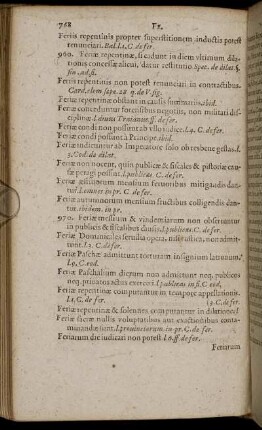 768 FE.
Feriis repentinis propter superstitionem inductis potest
renunciari. Bal. l. 1. C. de fer.
960. Feriæ repentinæ, si cadunt in diem ultimum dila-
tionis concessæ alicui, datur restitutio Spec. de dilat. §.
fin. ad fi.
Feriis repentinis non potest renunciari in contractibus.
Card. clem. sæpe. 28 q. de V. sig.
Feriæ repentinæ obstant in causis summariis. ibid.
Feriæ conceduntur forensibus negotiis, non militari disci-
plinæ. l. divus Trajanus ff. de fer.
Feriæ condi non possunt ab ullo judice. l. 4. C. de fer.
Feriæ condi possunt à Principe. ibid.
Feriæ indicuntur ab Imperatore solo ob rebene gestas. l.
3. Cod. de dilat.
Feriæ non nocent, quin publicæ & fiscales & pistoriæ cau-
sæ peragi possint. l. publicas. C. de fer.
Feriæ æstivorum mensium fervoribus mitigandis dan-
tur. l. omnes in pr. C. de fer.
Feriæ autumnorum mensium fructibus colligendis dan-
tur. eadem. in pr.
970. Feriæ messium & vindemiarum non observantur
in publicis & fiscalibus causis. l. publicas C. de fer.
Feriæ Dominicales servilia opera, nisi rustica, non admit-
tunt. l. 3. C. de fer.
Feriæ Paschæ admittunt torturam insignium latronum.
l. 9. C. eod.
Feriæ Paschalium dierum non admittunt neq; publicos
neq; privatos actus exerceri. l. publicas in fi. C. eod.
Feriæ repentinæ computantur in tempore appellationis.
l. 1. C. de fer. l. 3. C. de fer.
Feriæ repentinæ & solennes computantur in dilatione.
Feriæ sacræ nullis voluptatibus aut exactionibus conta-
minandæ sunt. l. provinciarum. in pr. C. de fer.
Feriarum die judicari non potest. l. 6. ff. de fer.
Feriarum